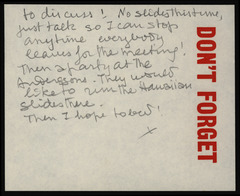 to discuss! No slides this time,
just talk so I can stop
anytime everybody
leaves for the meeting!
Then a party at the
Anderssons. They would
like to run the Hawaiian
slides there.
Then I hope to bed!
x
DON'T FORGET